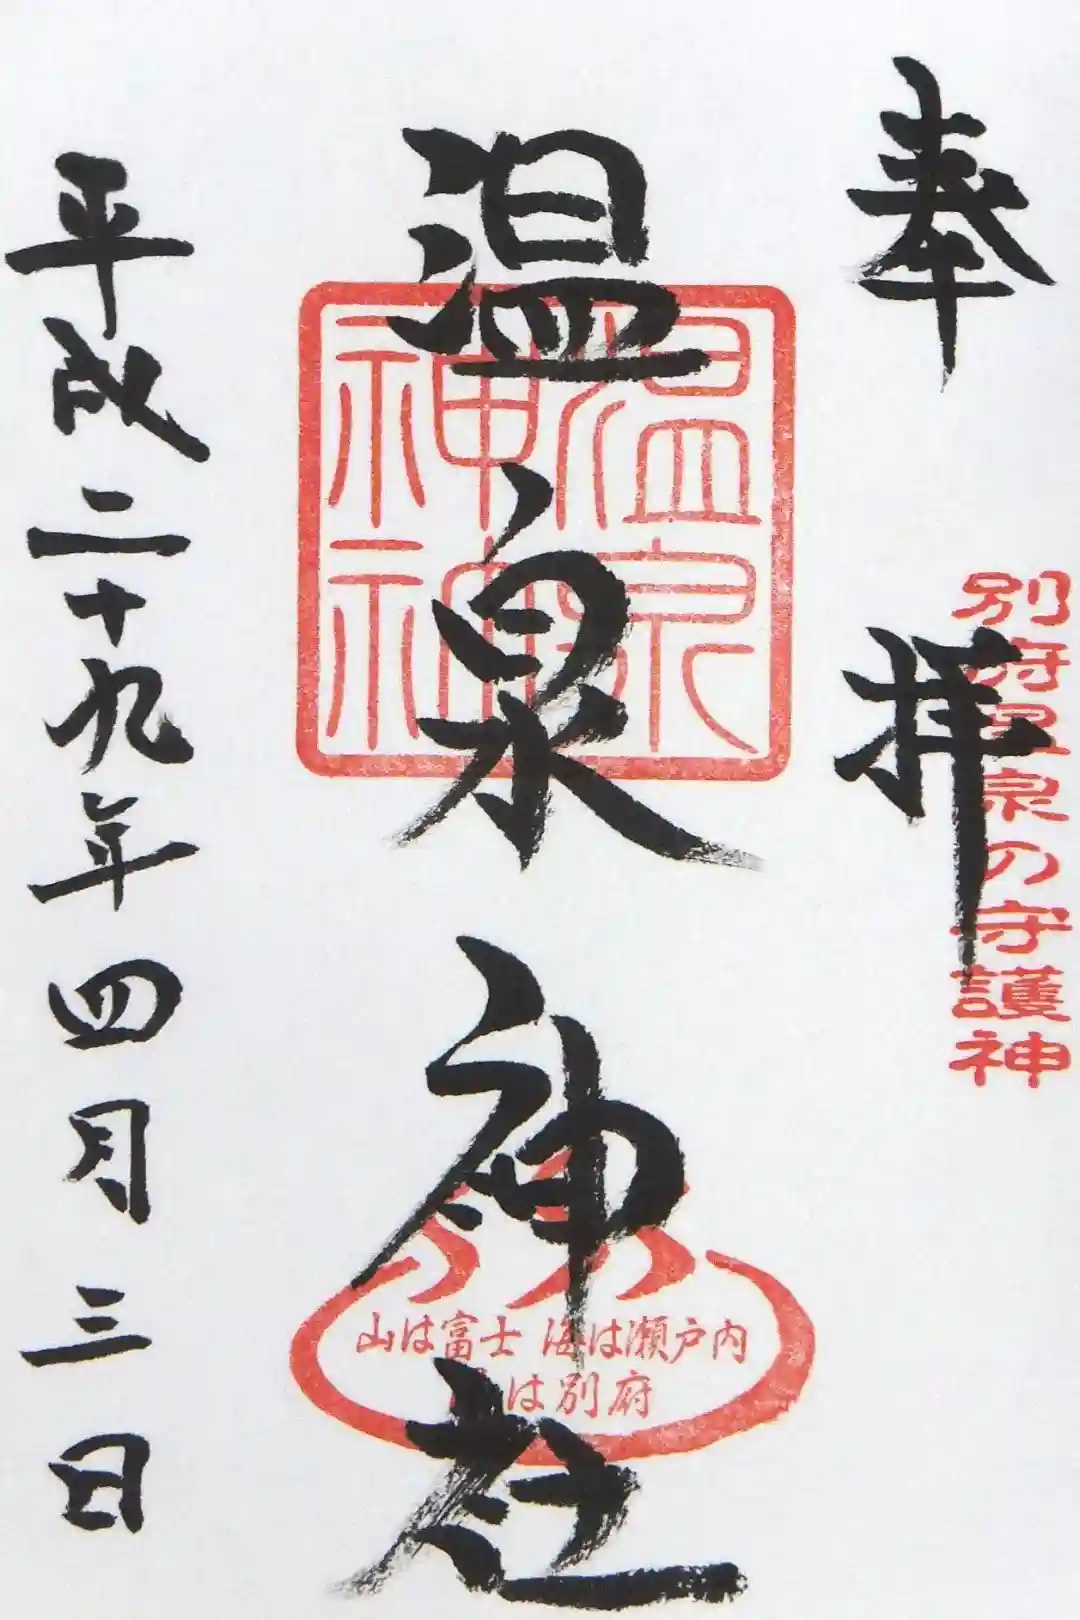 奉拝
別府温泉の守護神
温泉神社
温泉
神社
山は富士 海は瀬戸内
は別府
平成二十九年四月三日